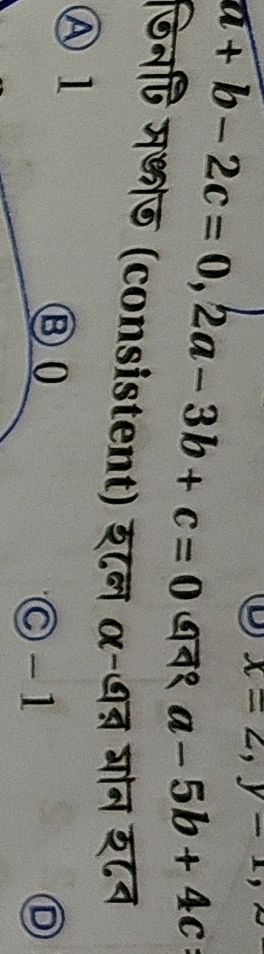 D x = 2, y - 1,
a + b - 2c = 0, 2a - 3b + c = 0 এবং a - 5b + 4c =
তিনটি সঙ্গত (consistent) হলে α-এর মান হবে
A 1 B 0 C -1 D